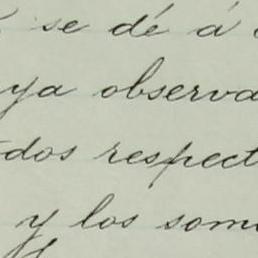 se dé á
ya observa
dos respect
y los som